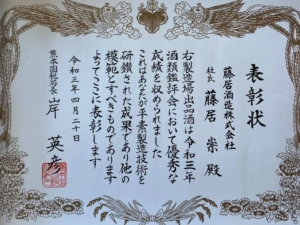 表彰状
藤居酒造株式会社
社長 藤居 崇 殿
右製造場出品酒は令和三年
酒類鑑評会において優秀な
成績を収められました
これはあなたが平素製造技術を
研鑽された成果であり他の
模範とすべきものであります
よってここに表彰します
令和三年四月二十日
熊本国税局長 岸 英彦